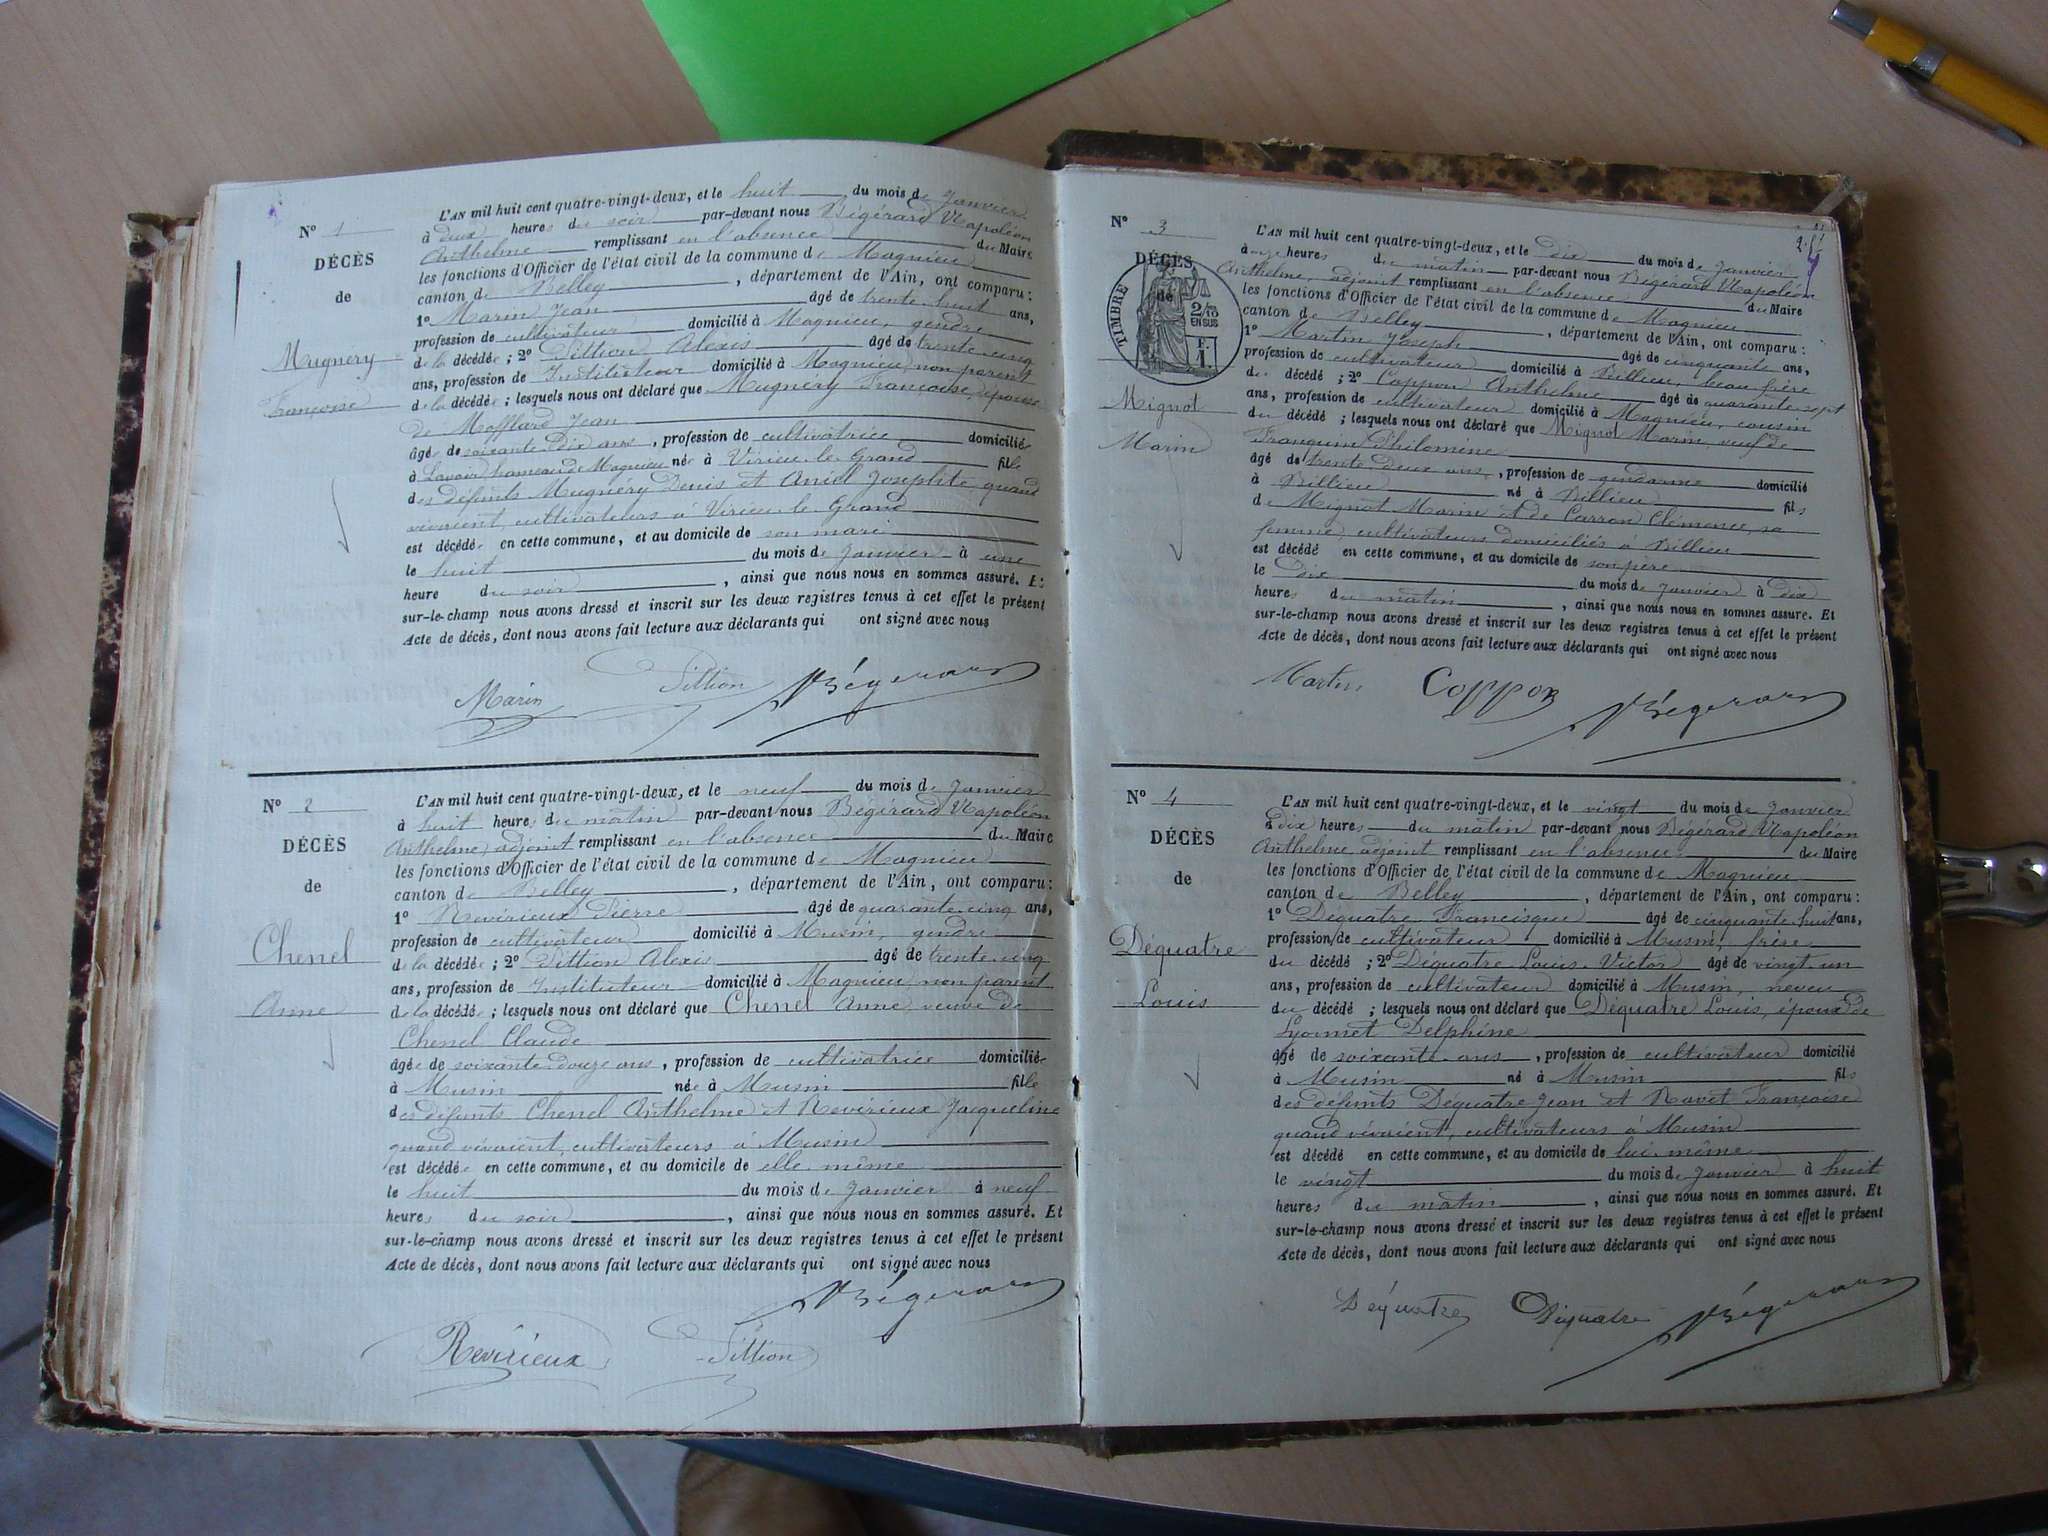 N° 1
DÉCÈS
de
Mugnery
Françoise
L'AN mil huit cent quatre-vingt-deux, et le huit du mois de Janvier
à deux heures du soir par-devant nous Bégérard Napoléon
Anthelme remplissant en l'absence du Maire
les fonctions d'Officier de l'état civil de la commune de Magnieu
canton de Belley, département de l'Ain, ont comparu :
1° Marin Jean âgé de trente-huit ans,
profession de cultivateur domicilié à Magnieu, gendre
de la décédée ; 2° Sittion Alexis âgé de trente-cinq
ans, profession de Instituteur domicilié à Magnieu, non parent
de la décédée ; lesquels nous ont déclaré que Mugnery Françoise, épouse
de Mofflard Jean
âgée de soixante dix ans, profession de cultivatrice domiciliée
à Lavoir hameau de Magnieu née à Virieu-le-Grand fille
des défunts Mugnéry Denis et Joséphte, quand
vivaient, cultivateurs à Virieu-le-Grand
est décédée en cette commune, et au domicile de son mari
le huit du mois de Janvier à une
heure du soir, ainsi que nous nous en sommes assuré. Et
sur-le-champ nous avons dressé et inscrit sur les deux registres tenus à cet effet le présent
Acte de décès, dont nous avons fait lecture aux déclarants qui ont signé avec nous
Marin Sittion Bégérard
N° 2
DÉCÈS
de
Chenel
Anne
L'AN mil huit cent quatre-vingt-deux, et le neuf du mois de Janvier
à huit heures du matin par-devant nous Bégérard Napoléon
Anthelme, adjoint remplissant en l'absence du Maire
les fonctions d'Officier de l'état civil de la commune de Magnieu
canton de Belley, département de l'Ain, ont comparu :
1° Revirieux Pierre âgé de quarante-cinq ans,
profession de cultivateur domicilié à Musin, gendre
de la décédée ; 2° Sittion Alexis âgé de trente-cinq
ans, profession de Instituteur domicilié à Magnieu, non parent
de la décédée ; lesquels nous ont déclaré que Chenel Anne, veuve de
Chenel Claude
âgée de soixante-douze ans, profession de cultivatrice domiciliée
à Musin née à Musin fille
des défunts Chenel Anthelme et Revirieux Jacqueline
quand vivaient, cultivateurs à Musin
est décédée en cette commune, et au domicile de elle-même
le huit du mois de Janvier à neuf
heures du soir, ainsi que nous nous en sommes assuré. Et
sur-le-champ nous avons dressé et inscrit sur les deux registres tenus à cet effet le présent
Acte de décès, dont nous avons fait lecture aux déclarants qui ont signé avec nous
Bégérard
Revirieux Sittion
N° 3
DÉCÈS
de
TIMBRE
2/10
EN SUS
F.
1.
Mignot
Marin
L'AN mil huit cent quatre-vingt-deux, et le dix du mois de Janvier
à onze heures du matin par-devant nous Bégérard Napoléon
Anthelme, adjoint remplissant en l'absence du Maire
les fonctions d'Officier de l'état civil de la commune de Magnieu
canton de Belley, département de l'Ain, ont comparu :
1° Martin Joseph âgé de cinquante ans,
profession de cultivateur domicilié à Billieu, beau-frère
du décédé ; 2° Coppon Anthelme âgé de quarante-sept
ans, profession de cultivateur domicilié à Magnieu, cousin
du décédé ; lesquels nous ont déclaré que Mignot Marin, veuf de
Franquin Philomène
âgé de trente-deux ans, profession de gendarme domicilié
à Billieu né à Billieu fils
de Mignot Marin et de Carron Clémence, sa
femme, cultivateurs domiciliés à Billieu
est décédé en cette commune, et au domicile de son père
le dix du mois de Janvier à dix
heures du matin, ainsi que nous nous en sommes assuré. Et
sur-le-champ nous avons dressé et inscrit sur les deux registres tenus à cet effet le présent
Acte de décès, dont nous avons fait lecture aux déclarants qui ont signé avec nous
Martin Coppon Bégérard
N° 4
DÉCÈS
de
Déquatre
Louis
L'AN mil huit cent quatre-vingt-deux, et le vingt du mois de Janvier
à dix heures du matin par-devant nous Bégérard Napoléon
Anthelme, adjoint remplissant en l'absence du Maire
les fonctions d'Officier de l'état civil de la commune de Magnieu
canton de Belley, département de l'Ain, ont comparu :
1° Déquatre Francisque âgé de cinquante-huit ans,
profession de cultivateur domicilié à Musin, frère
du décédé ; 2° Déquatre Louis-Victor âgé de vingt-un
ans, profession de cultivateur domicilié à Musin, neveu
du décédé ; lesquels nous ont déclaré que Déquatre Louis, époux de
Lyonnet Delphine
âgé de soixante-ans, profession de cultivateur domicilié
à Musin né à Musin fils
des défunts Déquatre Jean et Ravet Françoise
quand vivaient, cultivateurs à Musin
est décédé en cette commune, et au domicile de lui-même
le vingt du mois de Janvier à huit
heures du matin, ainsi que nous nous en sommes assuré. Et
sur-le-champ nous avons dressé et inscrit sur les deux registres tenus à cet effet le présent
Acte de décès, dont nous avons fait lecture aux déclarants qui ont signé avec nous
Déquatre Déquatre Bégérard